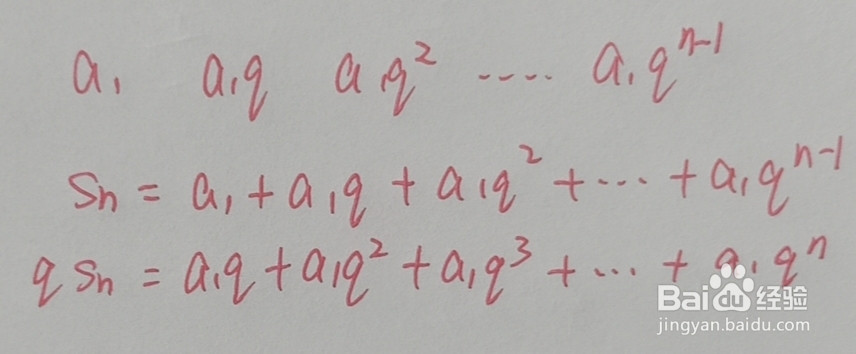 a₁ a₁q a₁q² ---- a₁qⁿ⁻¹
Sn = a₁ + a₁q + a₁q² + ··· + a₁qⁿ⁻¹
qSn = a₁q + a₁q² + a₁q³ + ··· + a₁qⁿ
Baidu经验
jingyan.baidu.com